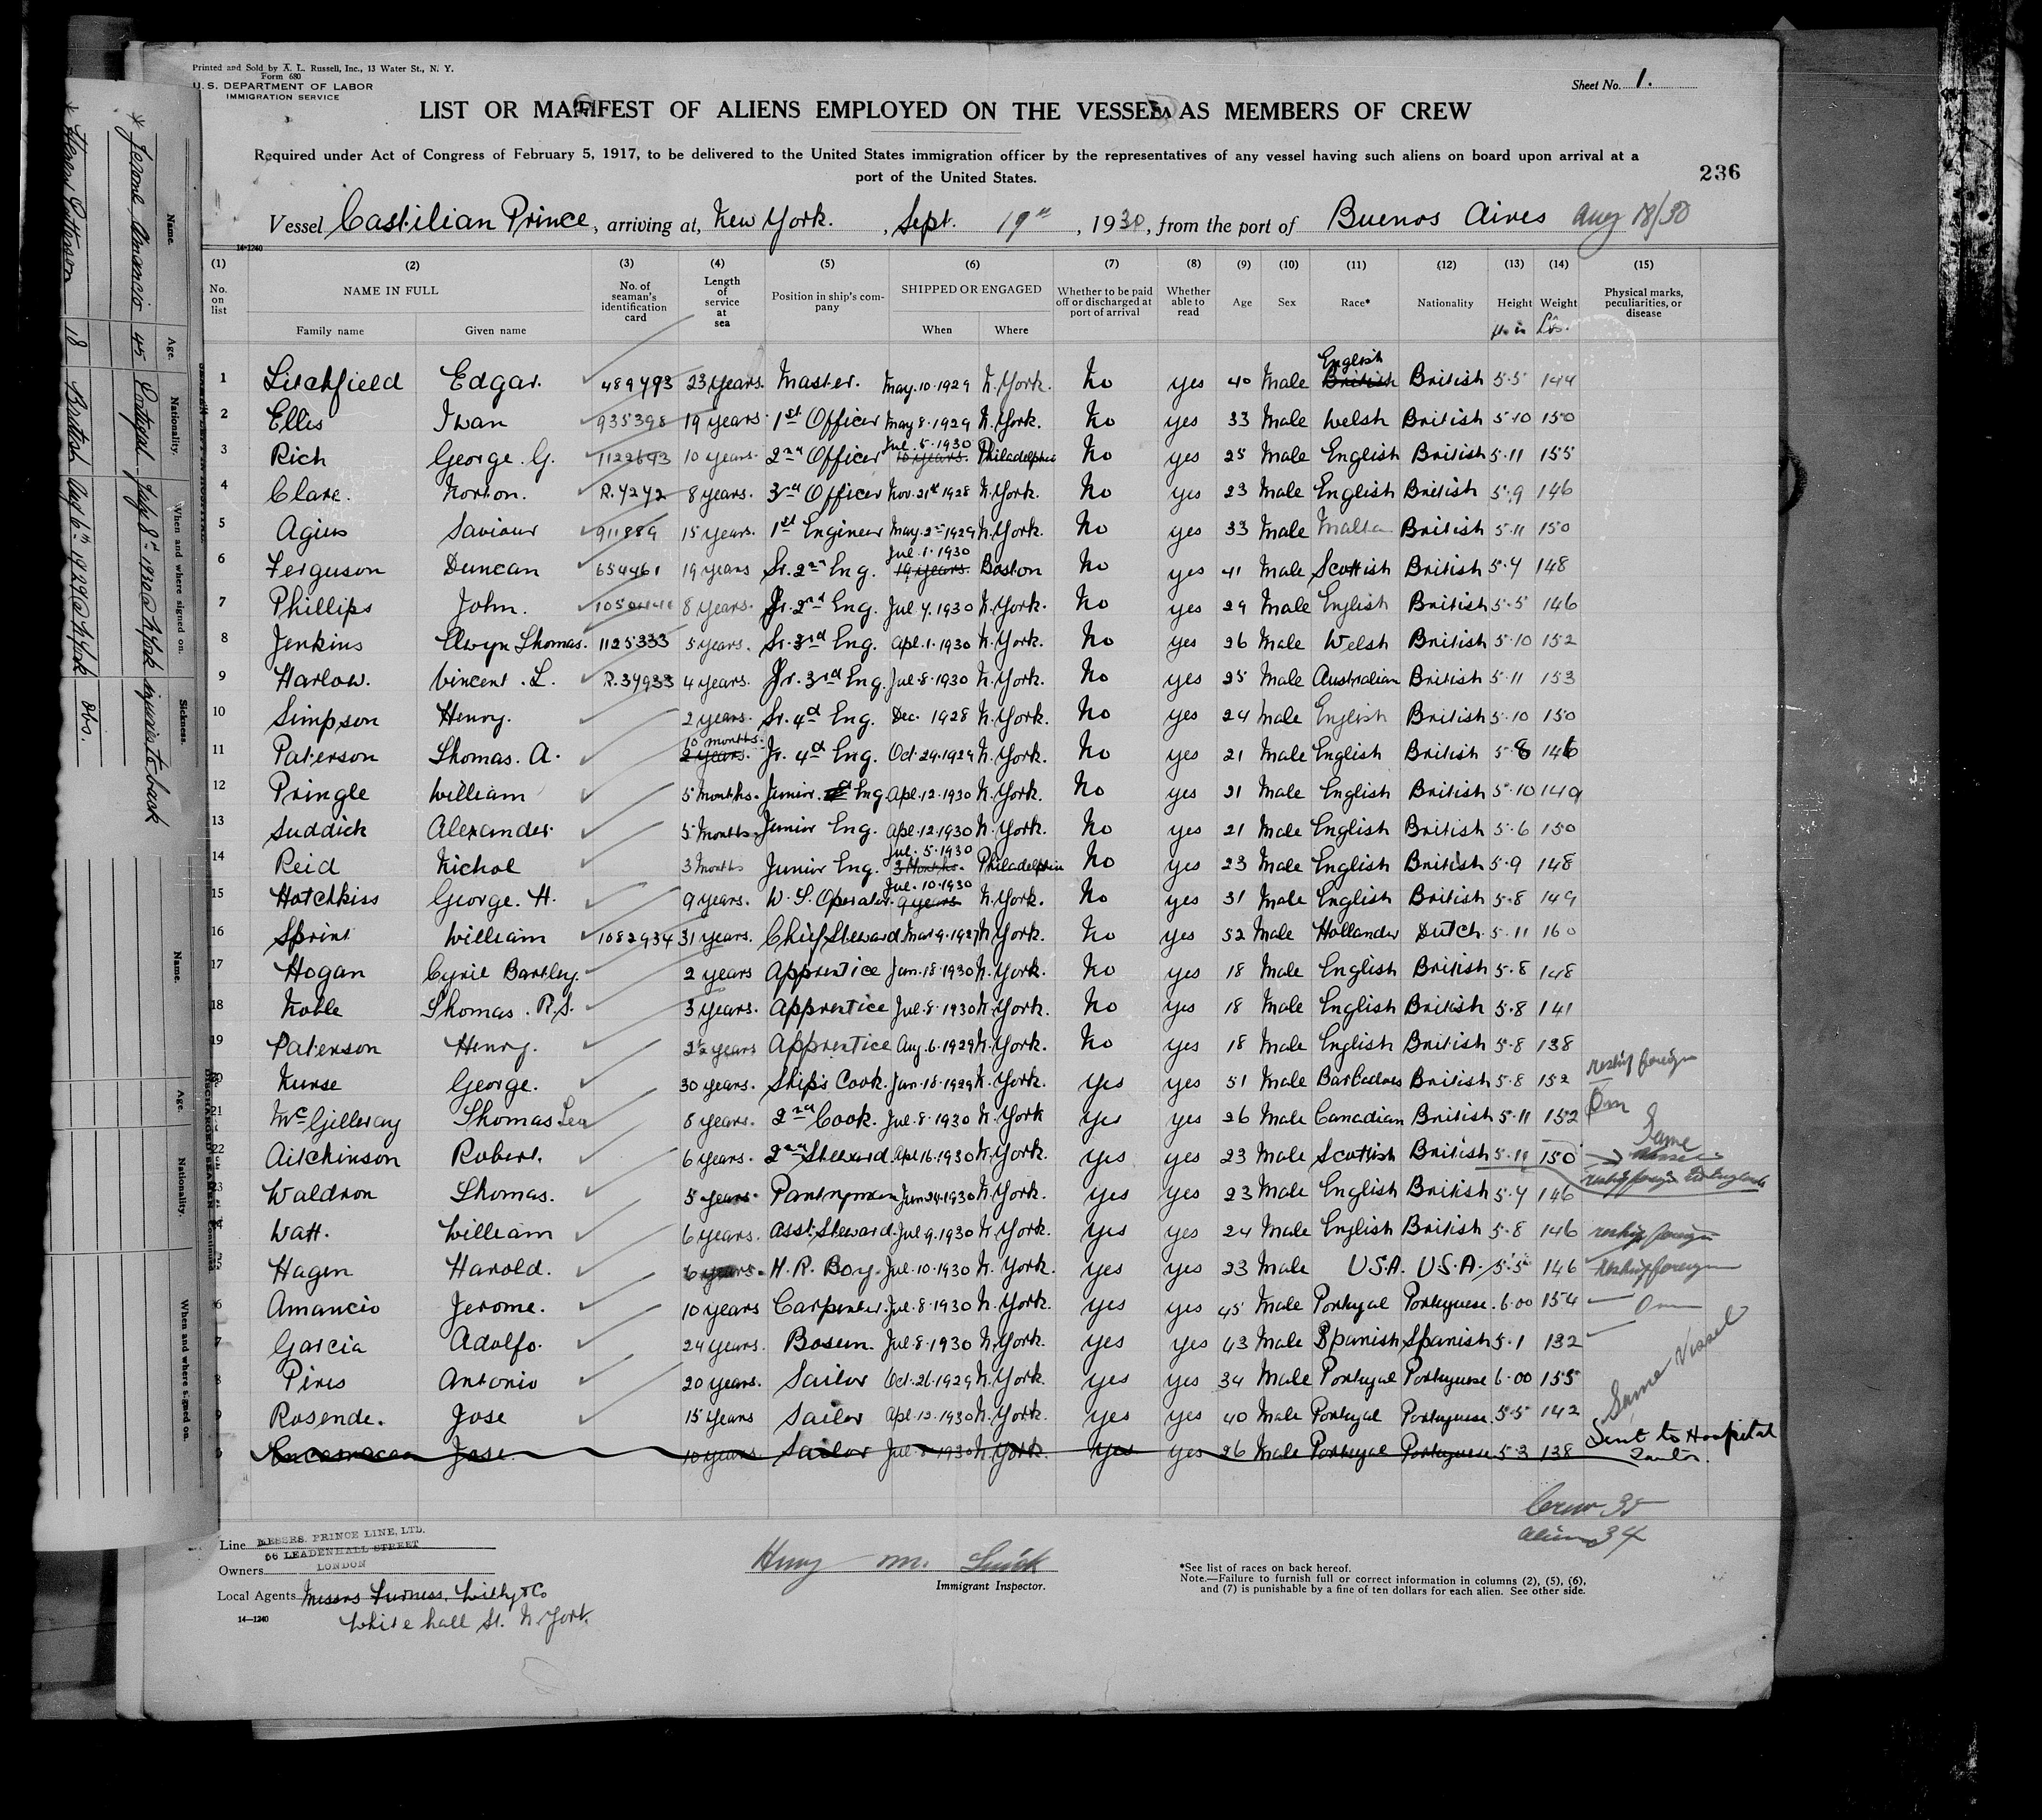 Printed and Sold by A. L. Russell, Inc., 13 Water St., N. Y.
Form 680
U. S. DEPARTMENT OF LABOR
IMMIGRATION SERVICE
Sheet No. 1.
LIST OR MANIFEST OF ALIENS EMPLOYED ON THE VESSEL AS MEMBERS OF CREW
Required under Act of Congress of February 5, 1917, to be delivered to the United States immigration officer by the representatives of any vessel having such aliens on board upon arrival at a
port of the United States.
236
Vessel Castilian Prince, arriving at, New York. , Sept. 19th , 1930, from the port of Buenos Aires Aug 18/30
14-1240
(1) (2) (3) (4) (5) (6) (7) (8) (9) (10) (11) (12) (13) (14) (15)
No. on list NAME IN FULL Family name Given name No. of seaman's identification card Length of service at sea Position in ship's company SHIPPED OR ENGAGED When Where Whether to be paid off or discharged at port of arrival Whether able to read Age Sex Race* Nationality Height ft in Weight Lbs. Physical marks, peculiarities, or disease
1 Litchfield Edgar. 489793 23 years. Master. May. 10. 1929 N. York. No yes 40 Male English British British 5.5 144
2 Ellis Iwan 935398 19 years. 1st Officer May 8. 1929 N. York. No yes 33 Male Welsh British 5.10 150
3 Rich George. G. 1122693 10 years. 2nd Officer Jul. 5. 1930 10 years. Philadelphia No yes 25 Male English British 5.11 155
4 Clare. Norton. R. 7272 8 years. 3rd Officer Nov. 21st 1928 N. York. No yes 23 Male English British 5.9 146
5 Agius Saviour 911889 15 years. 1st Engineer May. 2nd 1929 N. York. No yes 33 Male Malta British 5.11 150
6 Ferguson Duncan 654461 19 years Sr. 2nd Eng. Jul. 1. 1930 19 years. Boston No yes 41 Male Scottish British 5.7 148
7 Phillips John. 8 years. Jr. 2nd Eng. Jul 7. 1930 N. York. No yes 29 Male English British 5.5 146
8 Jenkins Elwyn Thomas. 1125333 5 years. Sr. 3rd Eng. Apl. 1. 1930 N. York. No yes 26 Male Welsh British 5.10 152
9 Harlow. Vincent. L. R. 37933 4 years. Jr. 3rd Eng. Jul. 8. 1930 N. York. No yes 25 Male Australian British 5.11 153
10 Simpson Henry. 2 years. Sr. 4th Eng. Dec. 1928 N. York. No yes 24 Male English British 5.10 150
11 Paterson Thomas. A. 10 months. 2 years. Jr. 4th Eng. Oct. 29. 1929 N. York. No yes 21 Male English British 5.8 146
12 Pringle William 5 Months. Junior. Eng. Apl. 12. 1930 N. York. No yes 21 Male English British 5.10 149
13 Suddick Alexander. 5 Months. Junior Eng. Apl. 12. 1930 N. York. No yes 21 Male English British 5.6 150
14 Reid Nichol 3 Months Junior Eng. Jul. 5. 1930 3 Months. Philadelphia No yes 23 Male English British 5.9 148
15 Hotchkiss George. H. 9 years. W. T. Operator. Jul. 10. 1930 9 years N. York. No yes 31 Male English British 5.8 149
16 Sprint William 1082934 31 years. Chief Steward Mar 9. 1927 N. York. No yes 52 Male Hollander Dutch. 5.11 160
17 Hogan Cyril Bartley. 2 years Apprentice Jun. 18. 1930 N. York. No yes 18 Male English British 5.8 148
18 Noble Thomas. R. S. 3 years. Apprentice Jul. 8. 1930 N. York. No yes 18 Male English British 5.8 141
19 Paterson Henry. 2½ years Apprentice Aug. 6. 1929 N. York. No yes 18 Male English British 5.8 138
20 Nurse George. 30 years. Ship's Cook. Jun. 18. 1929 N. York. Yes yes 51 Male Barbadoes British 5.8 152 reship foreign
21 McGilleray Thomas Leo 5 years. 2nd Cook. Jul. 8. 1930 N. York Yes yes 26 Male Canadian British 5.11 152
22 Aitchinson Robert. 6 years. 2nd Steward. Apl 16. 1930 N. York. Yes yes 23 Male Scottish British 5.11 150 Same
23 Waldron Thomas. 5 years. Pantryman Jun 24. 1930 N. York. Yes yes 23 Male English British 5.7 146
Watt. William 6 years. Asst. Steward. Jul 9. 1930 N. York. Yes yes 24 Male English British 5.8 146 reship foreign
Hagen Harold. 6 years. M. R. Boy. Jul. 10. 1930 N. York. yes yes 23 Male U.S.A. U.S.A. 5.5 146 Reship foreign
Amancio Jerome. 10 years Carpenter. Jul. 8. 1930 N. York. yes yes 45 Male Portugal Portuguese. 6.00 154
Garcia Adolfo. 24 years. Bosun. Jul. 8. 1930 N. York. yes yes 43 Male Spanish Spanish 5.1 132
Pires Antonio 20 years. Sailor Oct. 26. 1929 N. York yes yes 34 Male Portugal Portuguese 6.00 155
Rosende. Jose 15 years Sailor Apl. 12. 1930 N. York. yes yes 40 Male Portugal Portuguese. 5.5 142 Same Vessel
Encarnacao Jose. 10 years Sailor Jul. 8 1930 N. York. Yes yes 26 Male Portugal Portuguese 5.3 138 Sent to Hospital Santos.
Crew 35
Aliens 34
Line MESSRS. PRINCE LINE, LTD.
56 LEADENHALL STREET
Owners LONDON
Local Agents Messrs Furness, Withy & Co
14-1240 Whitehall St. N. York.
Henry M.
Immigrant Inspector.
*See list of races on back hereof.
Note.—Failure to furnish full or correct information in columns (2), (5), (6),
and (7) is punishable by a fine of ten dollars for each alien. See other side.
Name. Age. Nationality. When and where signed on. Sickness.
* Jerome Amancio 45 Portugal July 8th 1930 @ N York injuries to back
* Henry Patterson 18 British Aug 6th 1929 @ N York Obs.
Name. Age. Nationality. When and where signed on.